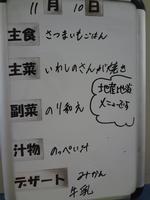 11月10日
主食 さつまいもごはん
主菜 いわしのさんが焼き
副菜 のり和え
地産地消
メニューです
汁物 のっぺい汁
デザート みかん
牛乳